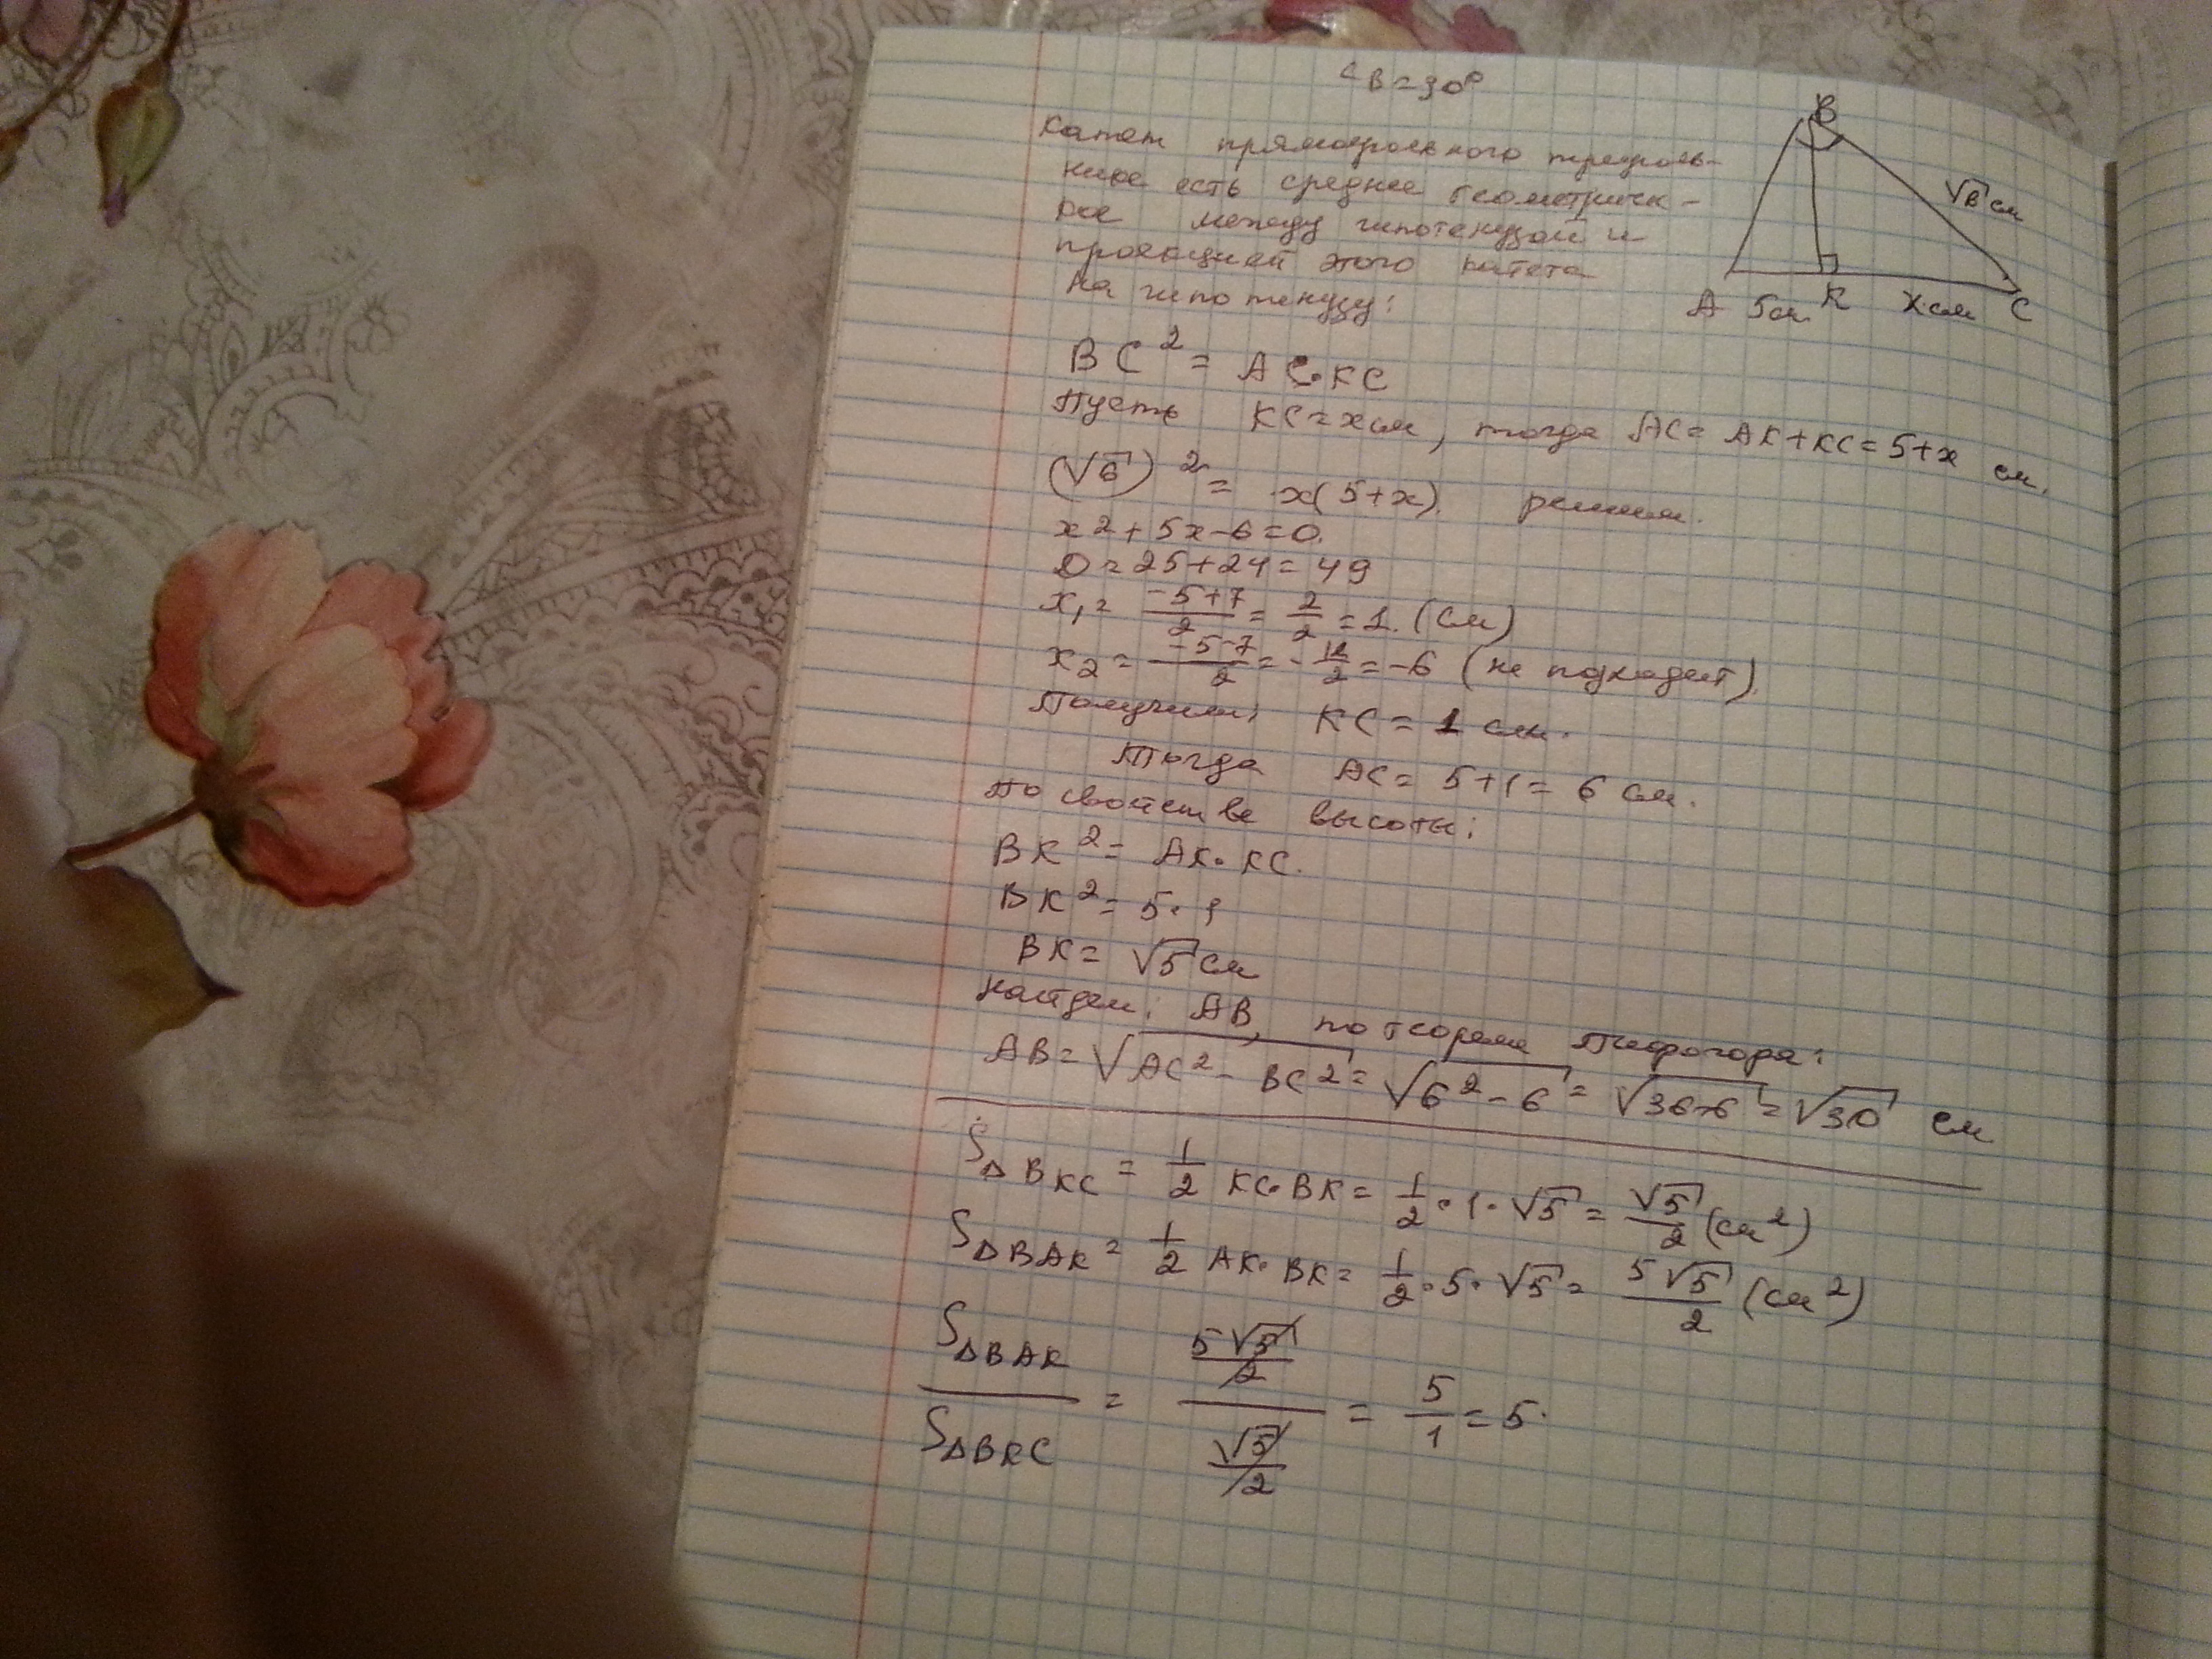 ∠B=90°
Катет прямоугольного треуголь-
ника есть среднее геометричес-
кое между гипотенузой и
проекцией этого катета
на гипотенузу:
B
√6 см
A 5см K X см C
BC² = AC·KC
Пусть KC=xсм, тогда AC= AK+KC=5+x см.
(√6)² = x(5+x). решим.
x2+5x-6=0.
D=25+24=49
x₁= (-5+7)/2 = 2/2 =1. (см)
x₂ = (-5-7)/2 = -12/2 = -6 (не подходит).
Получим: KC = 1 см.
Тогда AC= 5+1= 6 см.
По свойстве высоты:
BK² = AK·KC.
BK² = 5·1
BK= √5 см
найдем: AB, по теореме Пифогора:
AB= √AC² - BC² = √6² - 6 = √36-6 = √30 см
S∆BKC = 1/2 KC·BK= 1/2·1·√5 = √5/2 (см²)
S∆BAK = 1/2 AK·BK= 1/2·5·√5 = 5√5/2 (см²)
S∆BAK/S∆BKC = (5√5/2)/(√5/2) = 5/1 = 5.